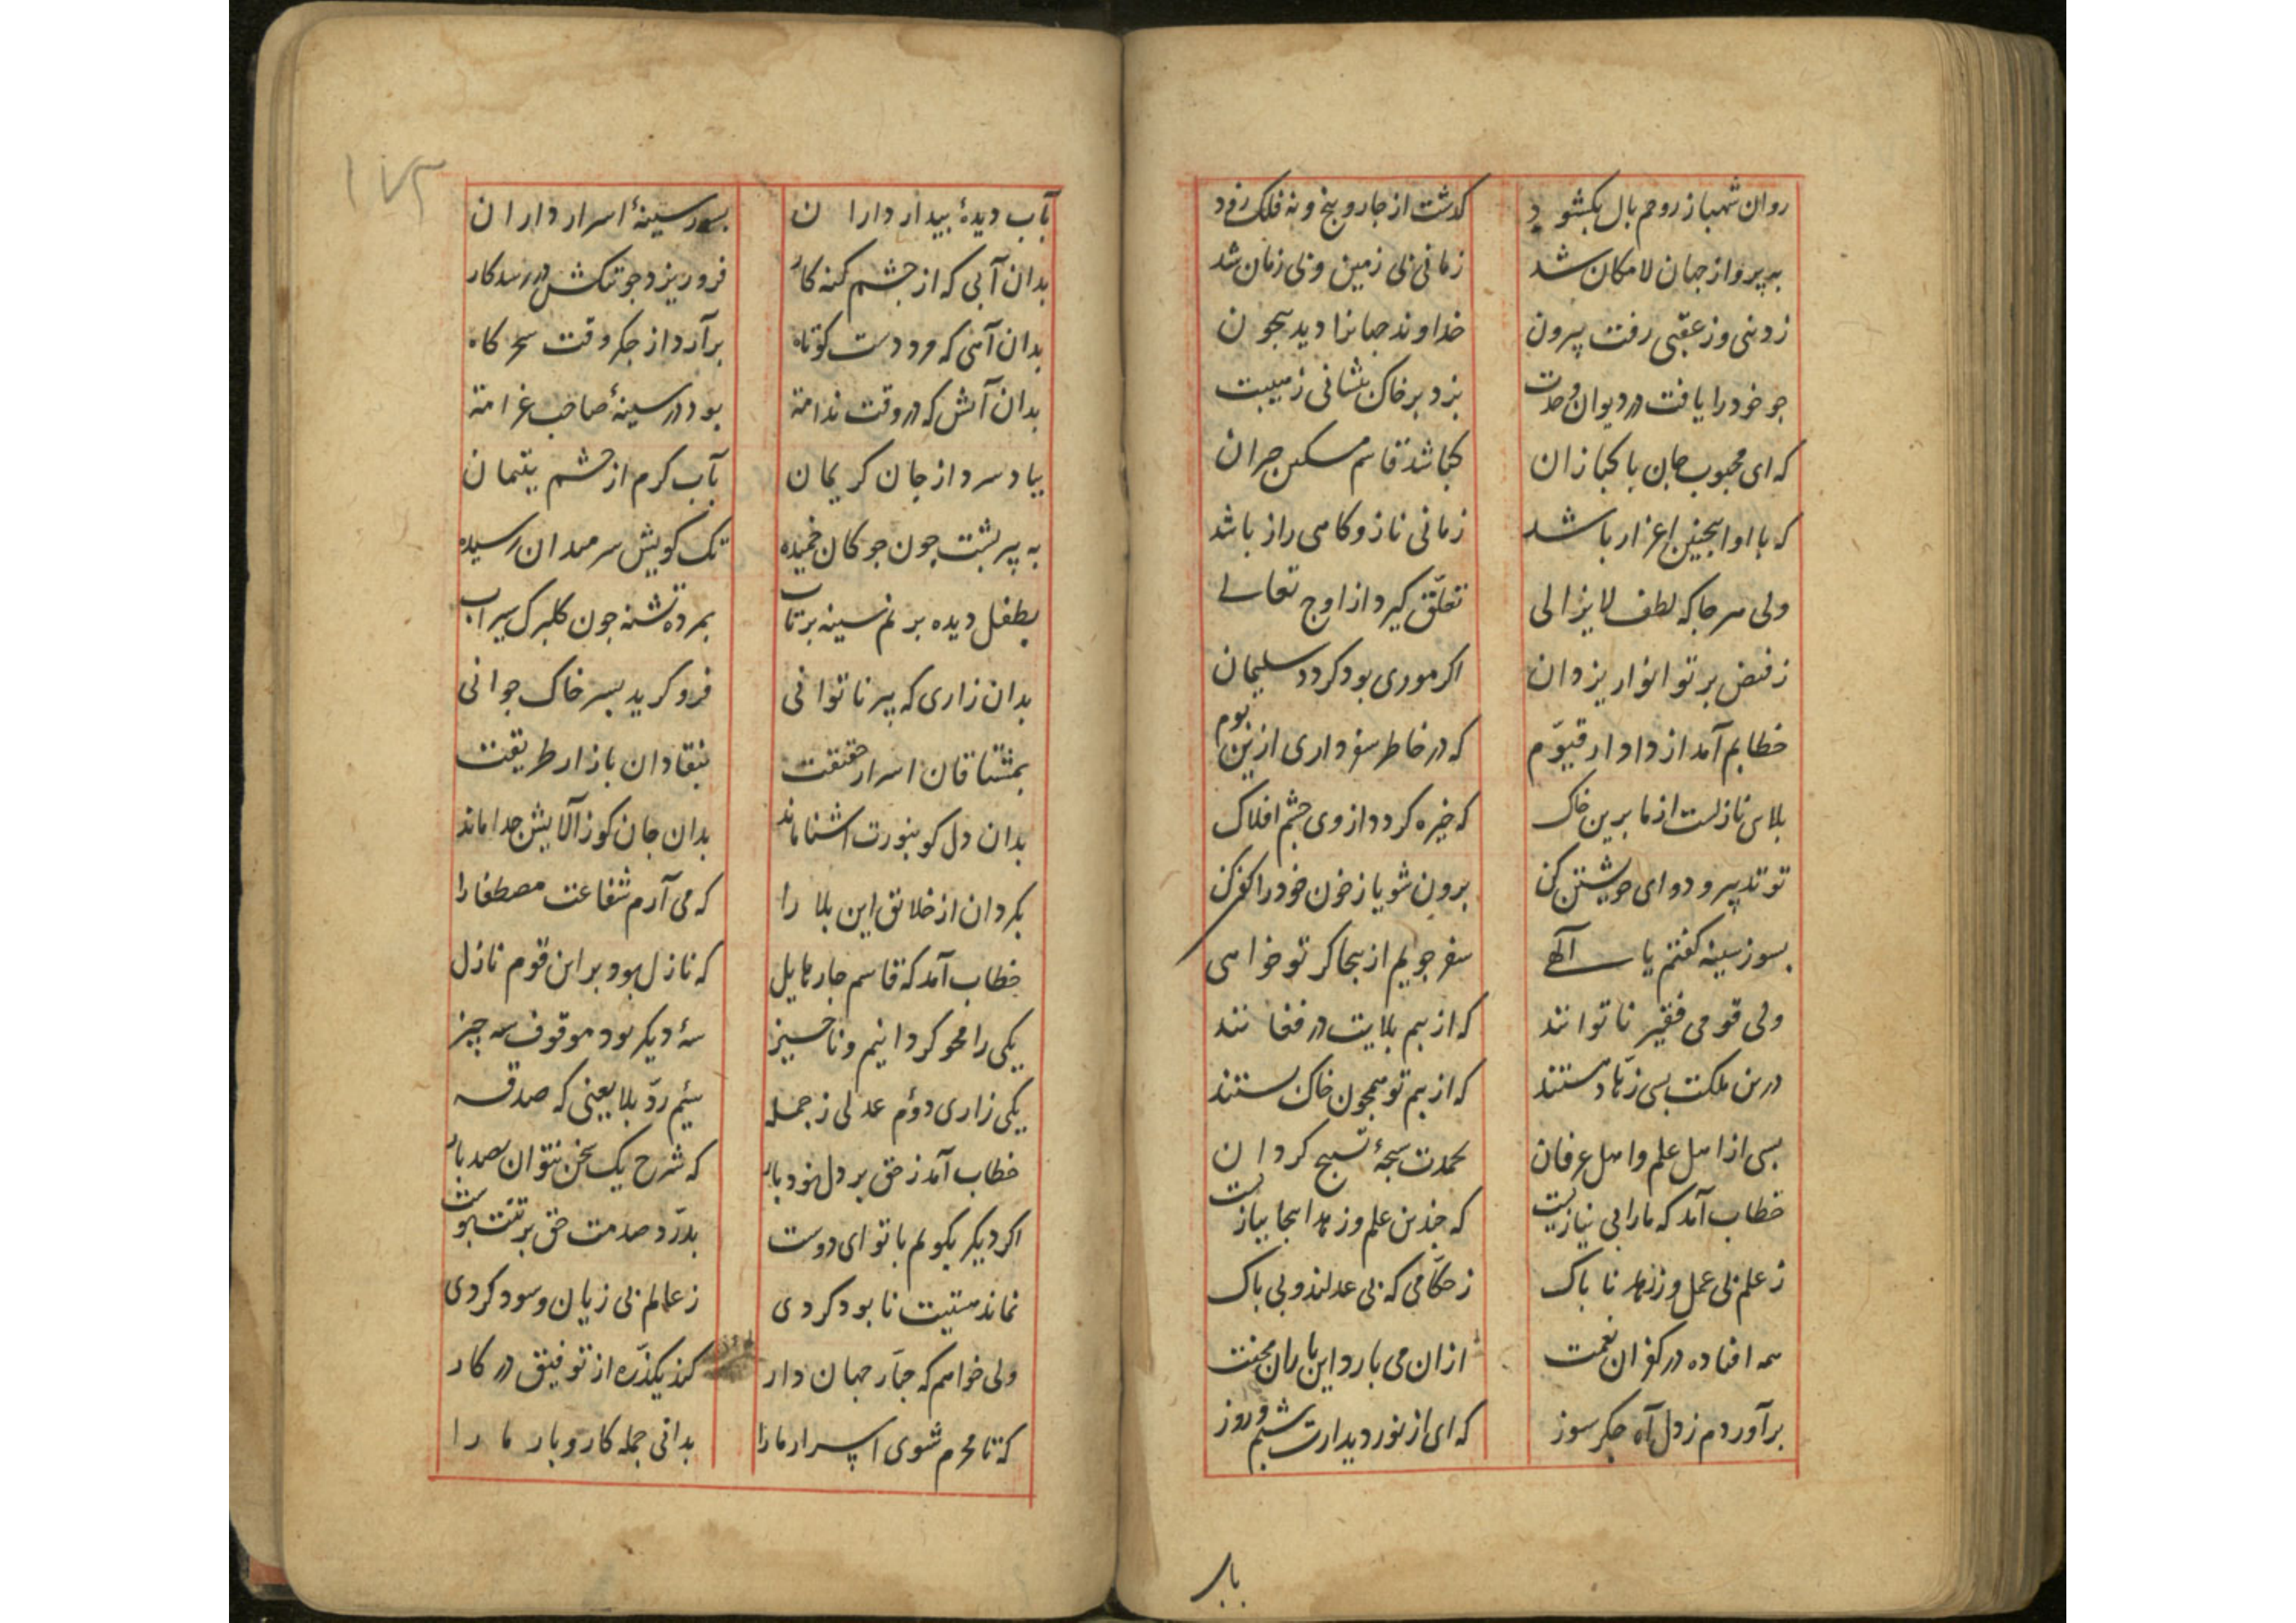 روان شهباز روحم بال بکشود کذشت از چار و پنج و نه فلک زود
به پرواز جهان لامکان شد زمانی بی زمین و بی زمان شد
ز دنیی وز عقبی رفت بیرون خداوند جهانرا دید بیچون
جو خود را یافت در دیوان وحدت بزد بر خاک پیشانی ز هیبت
که ای محبوب جان پاکبازان کجا شد قاسم مسکین حیران
که با او اینچنین اعزاز باشد زمانی ناز و کاهی راز باشد
ولی هر جا که لطف لایزالی تعلّق کیرد از اوج تعالی
ز فیض پرتو انوار یزدان اکر موری بود کردد سلیمان
خطابم آمد از دادار قیّوم که در خاطر سفر داری ازین بوم
بلای نازلست از ما برین خاک که خیره کردد از وی چشم افلاک
تو تدبیر و دوای خویشتن کن برون شو یا ز خون خود را کفن کن
بسوز سینه کفتم یا آلهی سفر جویم ازینجا کر تو خواهی
ولی قومی فقیر ناتوانند که از بیم بلایت در فغانند
درین ملکت بسی زهّاد هستند که از بیم تو همچون خاک پستند
بسی از اهل علم و اهل عرفان بحمدت سبحهٔ تسبیح کردان
خطاب آمد که ما را بی نیازیست که چندین علم و زهد اینجا ببازیست
ز علم بی عمل وز زهد ناپاک ز حکّامی که بی عدلند و بی باک
همه افتاده در کفران نعمت از آن می بارد این باران محنت
برآوردم ز دل آه جکرسوز که ای از نور دیدارت شبم روز
بآب
۱۷۲
بآب دیدهٔ بیدار داران بسوز سینهٔ اسرار داران
بدان آبی که از چشم کنه کار فرو ریزد جو تنکش در رسد کار
بدان آهی که مرد دست کوتاه برآرد از جکر وقت سحرکاه
بدان آتش که در وقت ندامة بود در سینهٔ صاحب غرامة
بباد سرد از جان کریمان بآب کرم از چشم یتیمان
به پیر پشت چون چوکان خمیده تک کویش سر میدان رسیده
بطفل دیده پر نم سینه پرتاب بمرده تشنه جون کلبرک سیراب
بدان زاری که پیر ناتوانی فرو کرید بسر خاک جوانی
بمشتاقان اسرار حقیقت بنقّادان بازار طریقت
بدان دل کو بنورت اشنا ماند بدان جان کو ز آلایش جدا ماند
بکردان از خلایق این بلا را که می آرم شفاعت مصطفا را
خطاب آمد که قاسم چار هایل که نازل بود بر این قوم نازل
یکی را محو کردانیم و ناچیز سهٔ دیکر بود موقوف سه چیز
یکی زاری دوّم عدلی ز جمله سیّم ردّ بلا یعنی که صدقه
خطاب آمد ز حق بر دل نهود بار که شرح یک سخن نتوان بصد بار
اکر دیکر بکویم با تو ای دوست بدرّد صدمت حق بر تنت پوست
نماند هستیت نابود کردی ز عالم بی زیان و سود کردی
ولی خواهم که جبّار جهان دار کند یکذرّه از توفیق در کار
که تا محرم شوی اسرار ما را بدانی جمله کار و بار ما را